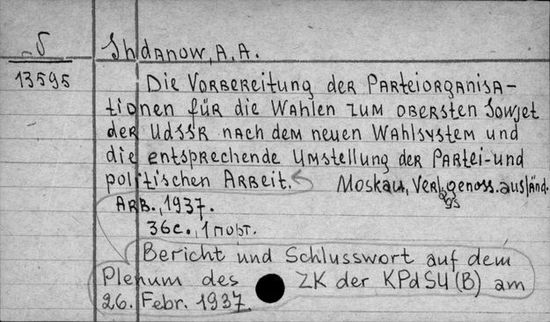 Б
13595
Shdanow, A. A.
Die Vorbereitung der Parteiorganisa-
tionen für die Wahlen zum obersten Sowjet
der UdSSR nach dem neuen Wahlsystem und
die entsprechende Umstellung der Partei- und
politischen Arbeit. Moskau, Verl. genoss. ausländ.
Arb., 1937.
36 с., 1 порт.
Bericht und Schlusswort auf dem
Plenum des ZK der KPdSU (B) am
26. Febr. 1937